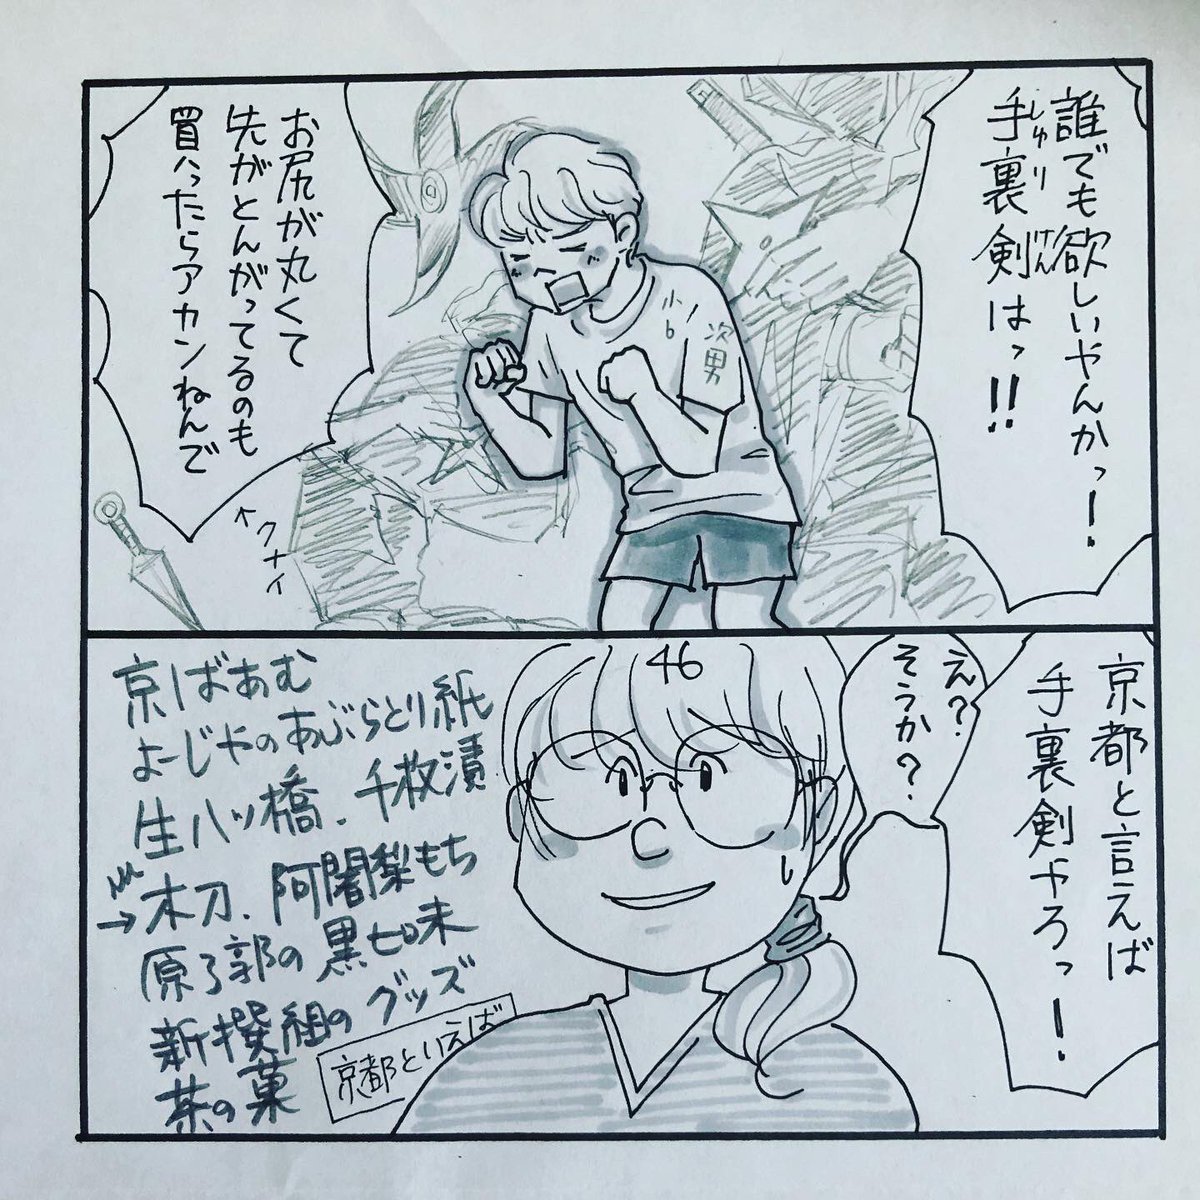 誰でも欲しいやんかっー
手裏剣はっ!!
しゅりけん
お尻が丸くて
先がとんがってるのも
買ハったらアカンねんで
小6
次男
←クナイ
京都と言えば
手裏剣やろっー!
え?
そうか?
46
京ばあむ
よーじやのあぶらとり紙
生八ッ橋、千枚漬
→木刀、阿闍梨もち
原了郭の黒七味
新撰組のグッズ
茶の菓
京都といえば